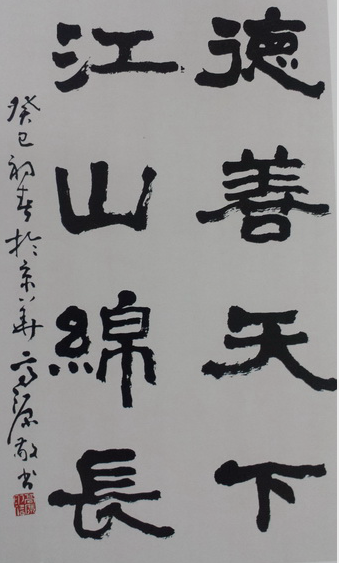 德善天下
江山綿長
癸巳初春於京華高源敬书